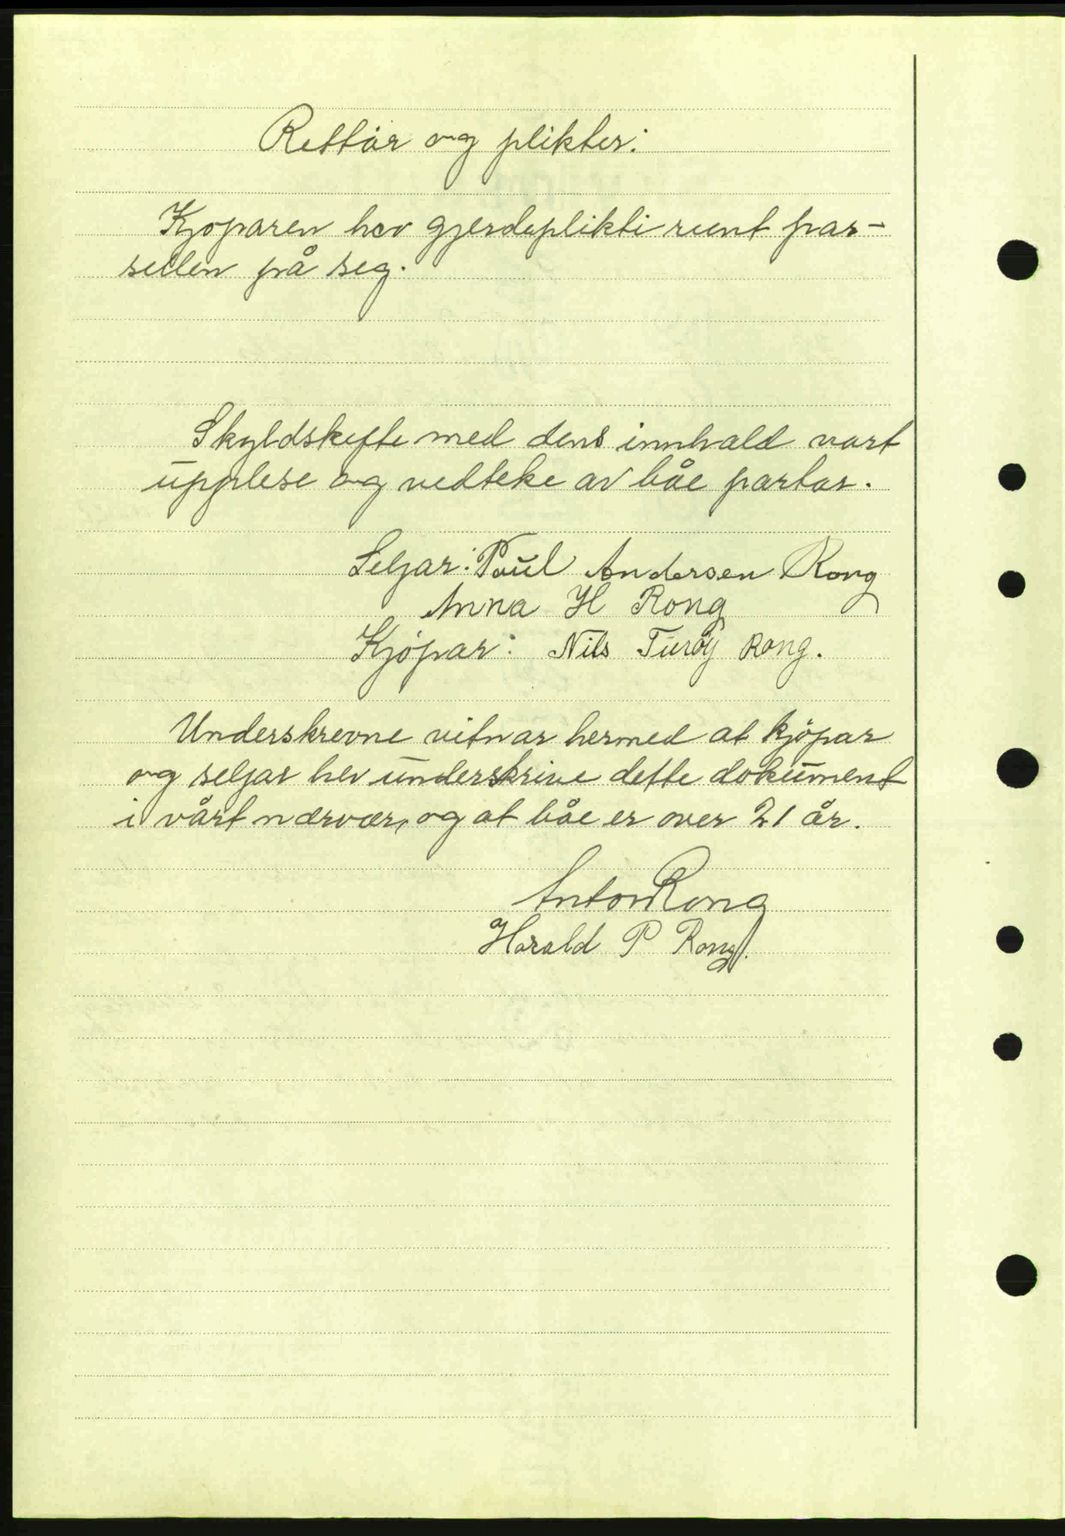 Rettar og plikter:
Kjoparen hev gjerdeplikti runt par-
sellen på seg.
Skyldskifte med dens innhald vart
upplese og vedteke av båe partar.
Seljar: Paul Andersen Rong
Anna H Rong
Kjöpar: Nils Turöy Rong.
Underskrevne vitnar hermed at kjöpar
og seljar hev underskrive dette dokument
i vårt nærvær, og at båe er over 21 år.
Anton Rong
Harald P Rong.